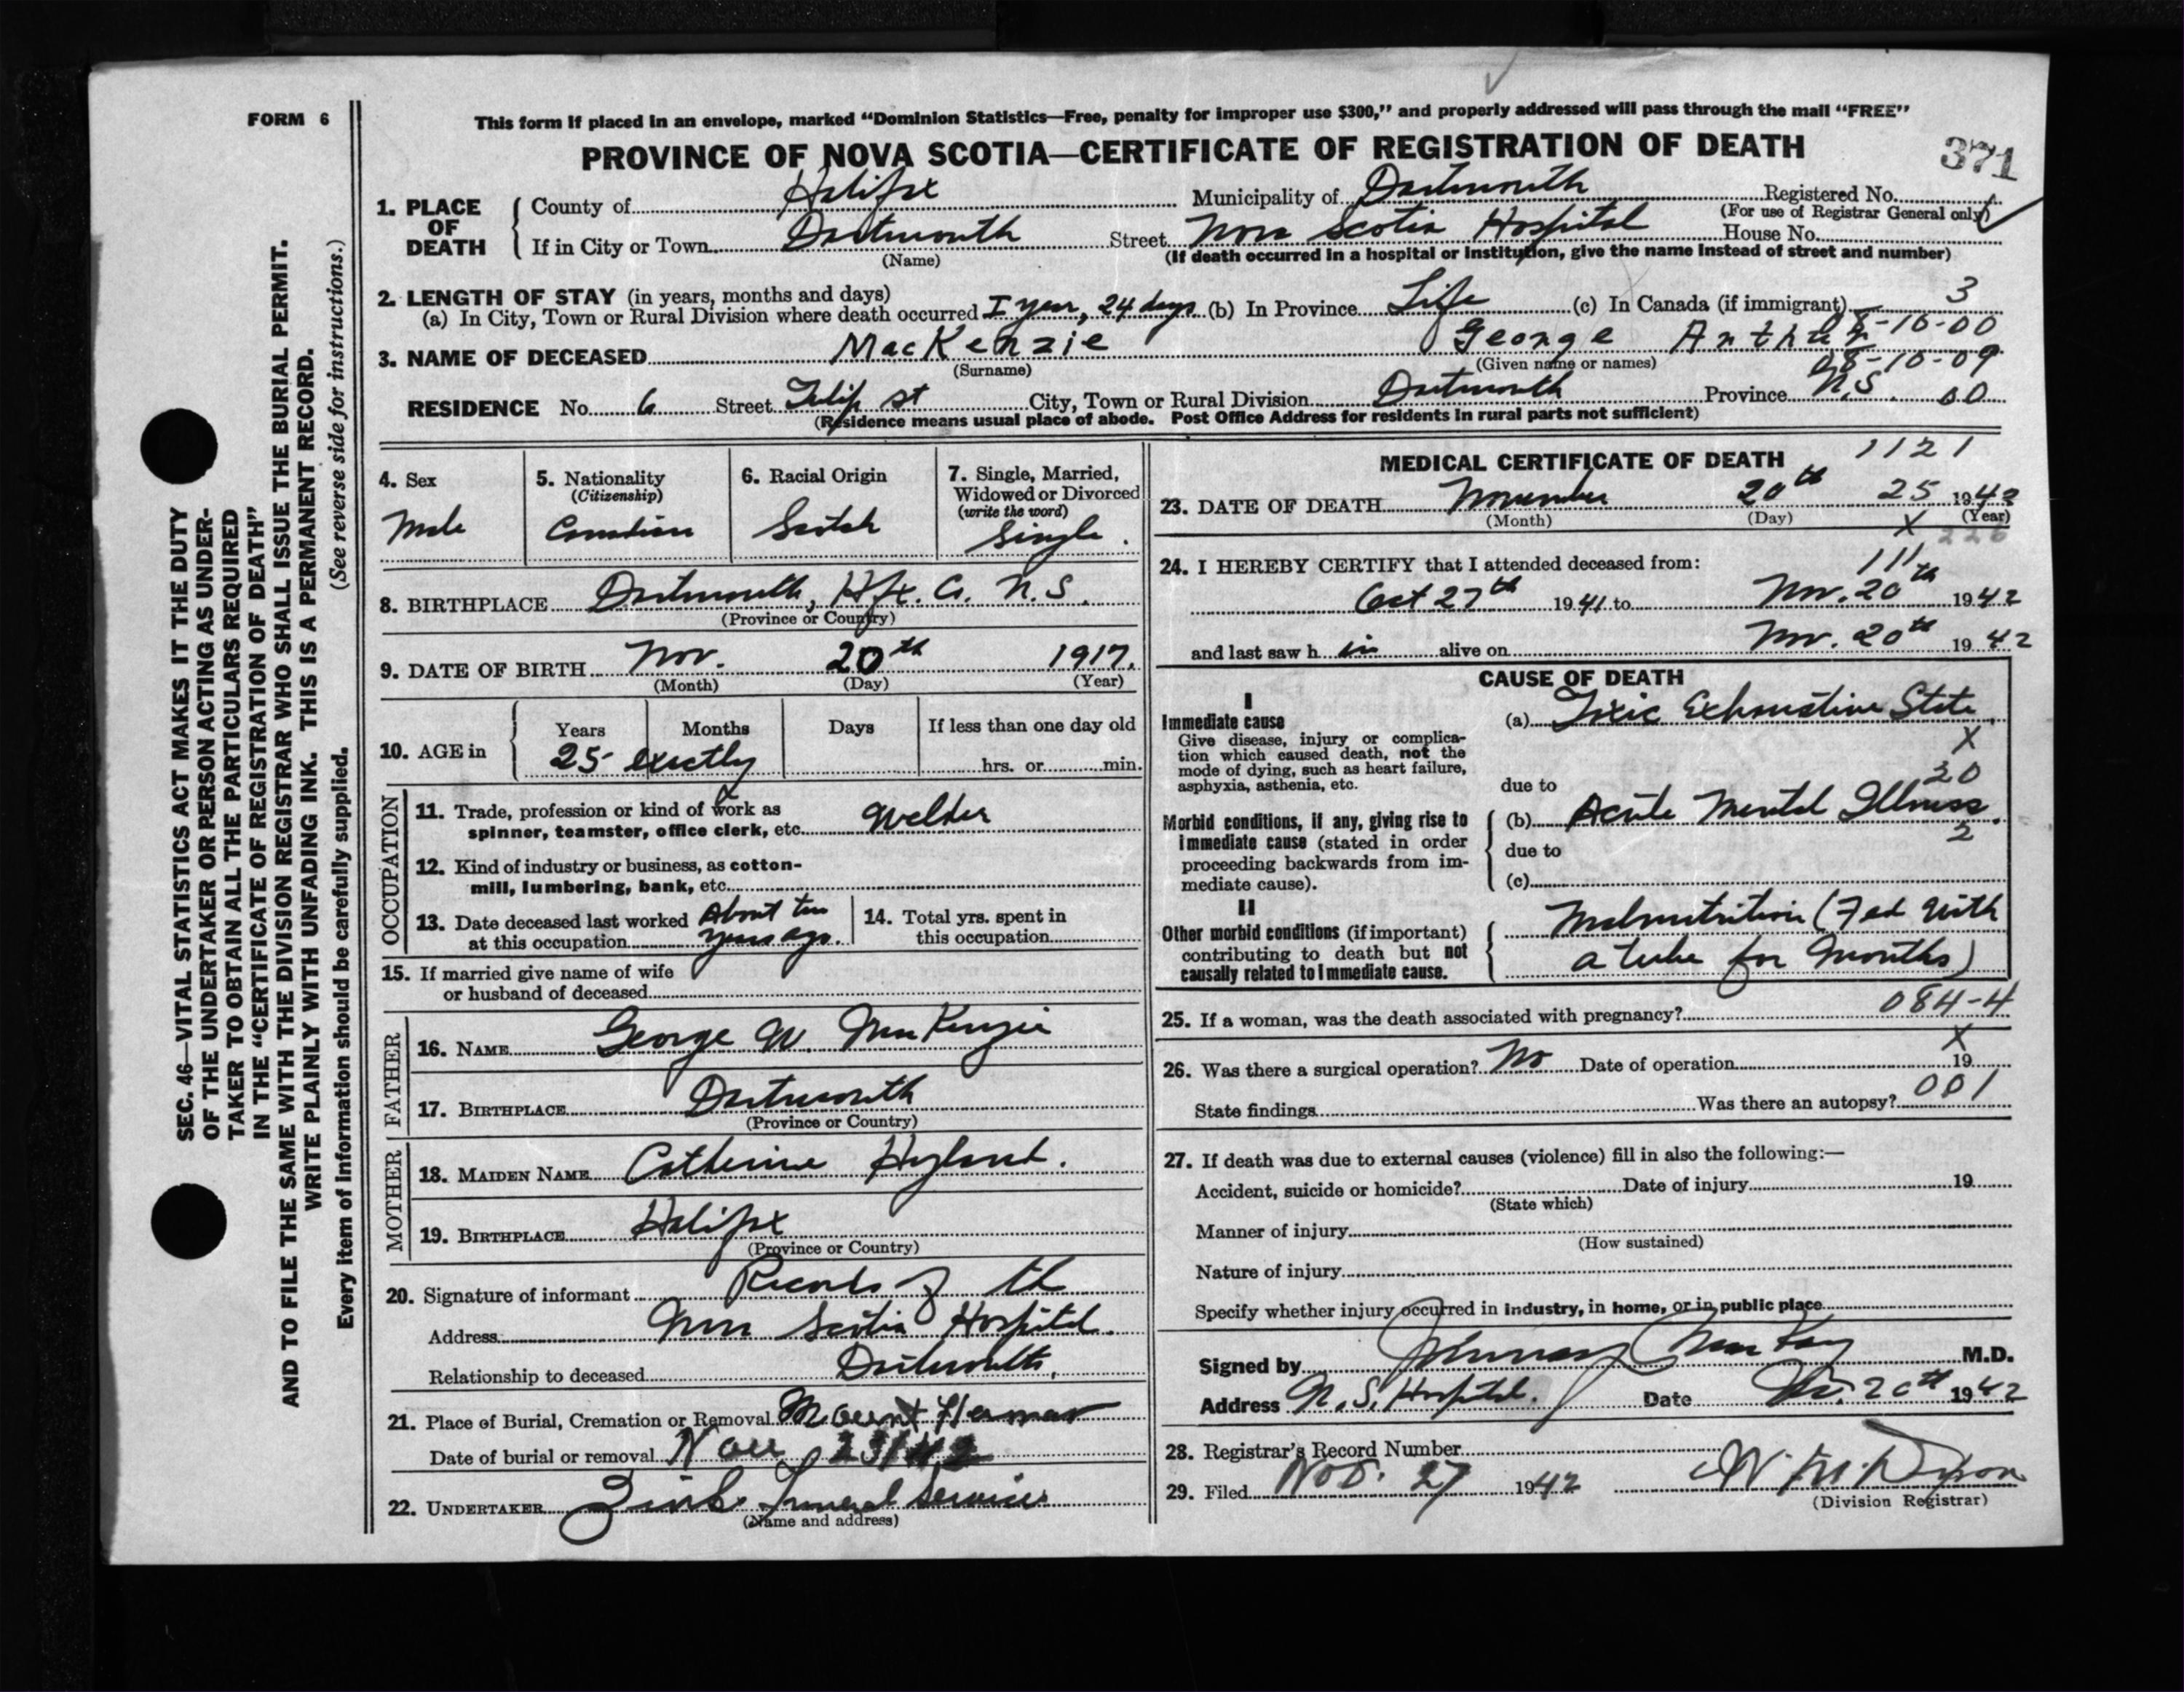 FORM 6
This form if placed in an envelope, marked "Dominion Statistics—Free, penalty for improper use $300," and properly addressed will pass through the mail "FREE"
PROVINCE OF NOVA SCOTIA—CERTIFICATE OF REGISTRATION OF DEATH
371
1. PLACE OF DEATH
County of Halifax Municipality of Dartmouth Registered No.
(For use of Registrar General only)
If in City or Town Dartmouth Street Nova Scotia Hospital House No.
(Name) (If death occurred in a hospital or institution, give the name instead of street and number)
2. LENGTH OF STAY (in years, months and days)
(a) In City, Town or Rural Division where death occurred 1 year, 24 days (b) In Province Life (c) In Canada (if immigrant) 3
08-10-00
3. NAME OF DECEASED MacKenzie George Arthur
(Surname) (Given name or names) 08-10-09
RESIDENCE No. 6 Street Tulip st City, Town or Rural Division Dartmouth Province N.S. 00
(Residence means usual place of abode. Post Office Address for residents in rural parts not sufficient)
4. Sex
Male
5. Nationality
(Citizenship)
Canadian
6. Racial Origin
Scotch
7. Single, Married,
Widowed or Divorced
(write the word)
Single.
8. BIRTHPLACE Dartmouth, Hfx. Co. N.S.
(Province or Country)
9. DATE OF BIRTH Nov. 20th 1917.
(Month) (Day) (Year)
10. AGE in Years Months Days If less than one day old
25 exactly hrs. or min.
OCCUPATION
11. Trade, profession or kind of work as
spinner, teamster, office clerk, etc. Welder
12. Kind of industry or business, as cotton-
mill, lumbering, bank, etc.
13. Date deceased last worked About two
at this occupation years ago.
14. Total yrs. spent in
this occupation
15. If married give name of wife
or husband of deceased
FATHER
16. NAME George W. MacKenzie
17. BIRTHPLACE Dartmouth
(Province or Country)
MOTHER
18. MAIDEN NAME Catherine Hyland.
19. BIRTHPLACE Halifax
(Province or Country)
20. Signature of informant Records of the
Address Nova Scotia Hospital.
Relationship to deceased Dartmouth.
21. Place of Burial, Cremation or Removal Mount Herman
Date of burial or removal Nov 23/42
22. UNDERTAKER Zinks Funeral Service
(Name and address)
MEDICAL CERTIFICATE OF DEATH 1121
23. DATE OF DEATH November 20th 25 1942
(Month) (Day) X (Year)
226
24. I HEREBY CERTIFY that I attended deceased from: 111
Oct 27th 1941 to Nov. 20th 1942
and last saw h im alive on Nov. 20th 1942
CAUSE OF DEATH
I
Immediate cause
Give disease, injury or complica-
tion which caused death, not the
mode of dying, such as heart failure,
asphyxia, asthenia, etc.
(a) Toxic Exhaustive State.
X
20
due to
Morbid conditions, if any, giving rise to
immediate cause (stated in order
proceeding backwards from im-
mediate cause).
(b) Acute Mental Illness.
2
due to
(c)
II
Other morbid conditions (if important)
contributing to death but not
causally related to immediate cause.
Malnutrition (Fed with
a tube for months)
084-4
25. If a woman, was the death associated with pregnancy?
X
26. Was there a surgical operation? No Date of operation 19
001
State findings Was there an autopsy?
27. If death was due to external causes (violence) fill in also the following:—
Accident, suicide or homicide? Date of injury 19
(State which)
Manner of injury
(How sustained)
Nature of injury
Specify whether injury occurred in industry, in home, or in public place
Signed by Murray MacKay M.D.
Address N.S. Hospital. Date Nov. 20th 1942
28. Registrar's Record Number
29. Filed Nov. 27 1942
(Division Registrar)
SEC. 46—VITAL STATISTICS ACT MAKES IT THE DUTY
OF THE UNDERTAKER OR PERSON ACTING AS UNDER-
TAKER TO OBTAIN ALL THE PARTICULARS REQUIRED
IN THE "CERTIFICATE OF REGISTRATION OF DEATH"
AND TO FILE THE SAME WITH THE DIVISION REGISTRAR WHO SHALL ISSUE THE BURIAL PERMIT.
WRITE PLAINLY WITH UNFADING INK. THIS IS A PERMANENT RECORD.
Every item of information should be carefully supplied. (See reverse side for instructions.)